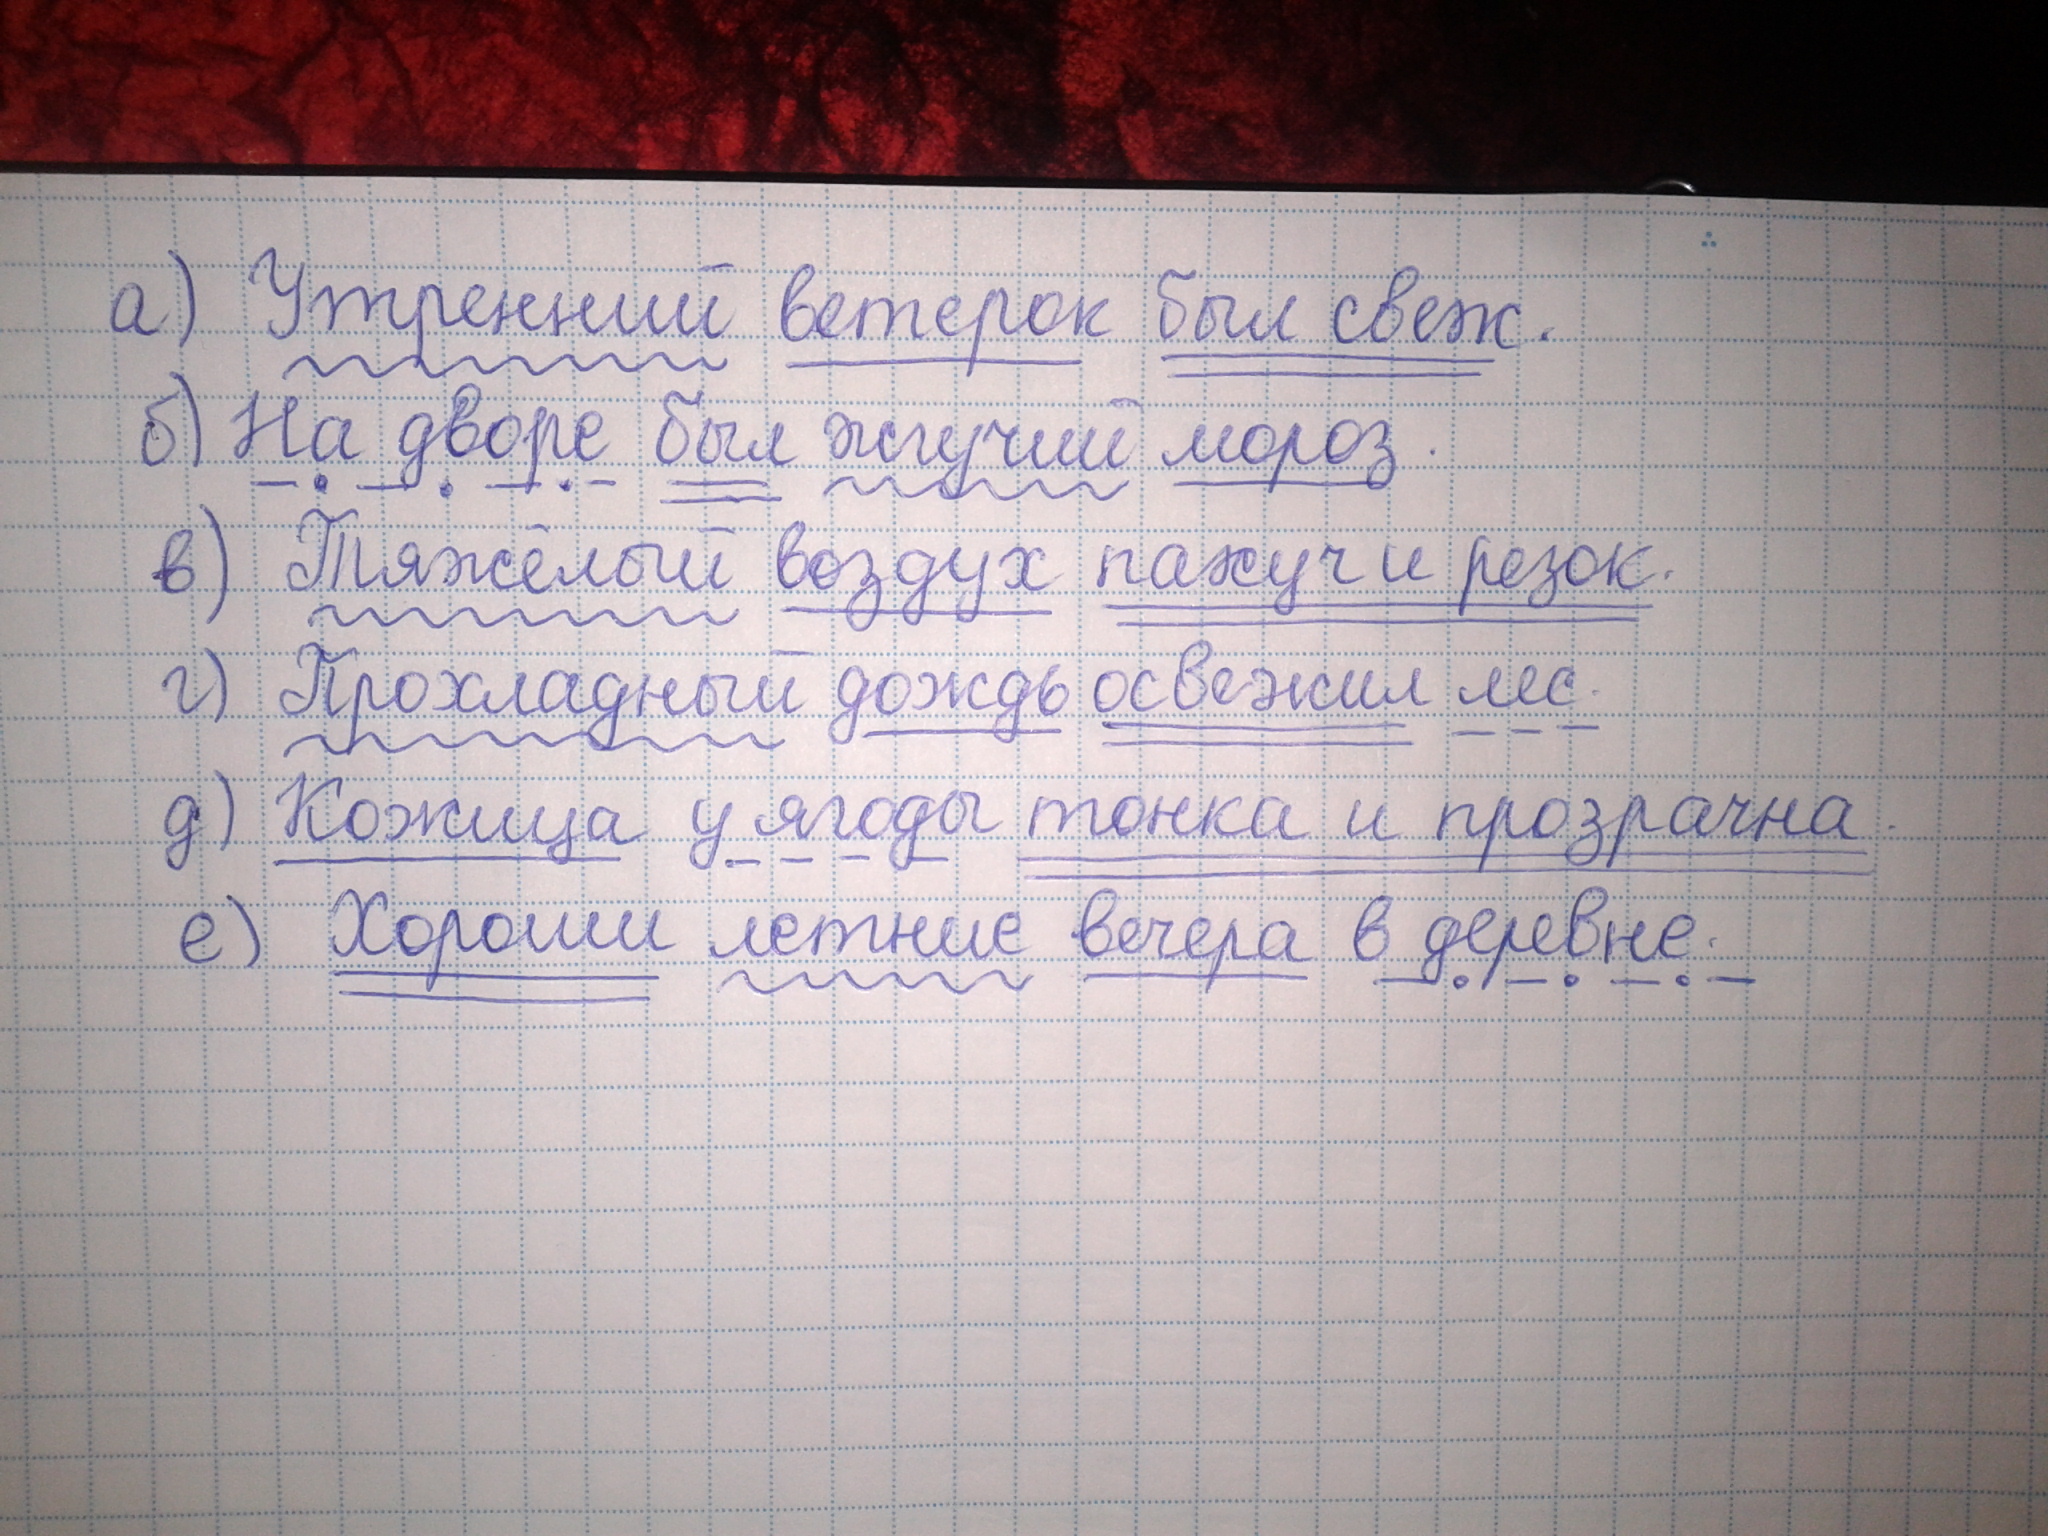 а) Утренний ветерок был свеж.
б) На дворе был жгучий мороз.
в) Тяжёлый воздух пахуч и резок.
г) Прохладный дождь освежил лес.
д) Кожица у ягоды тонка и прозрачна.
е) Хороши летние вечера в деревне.